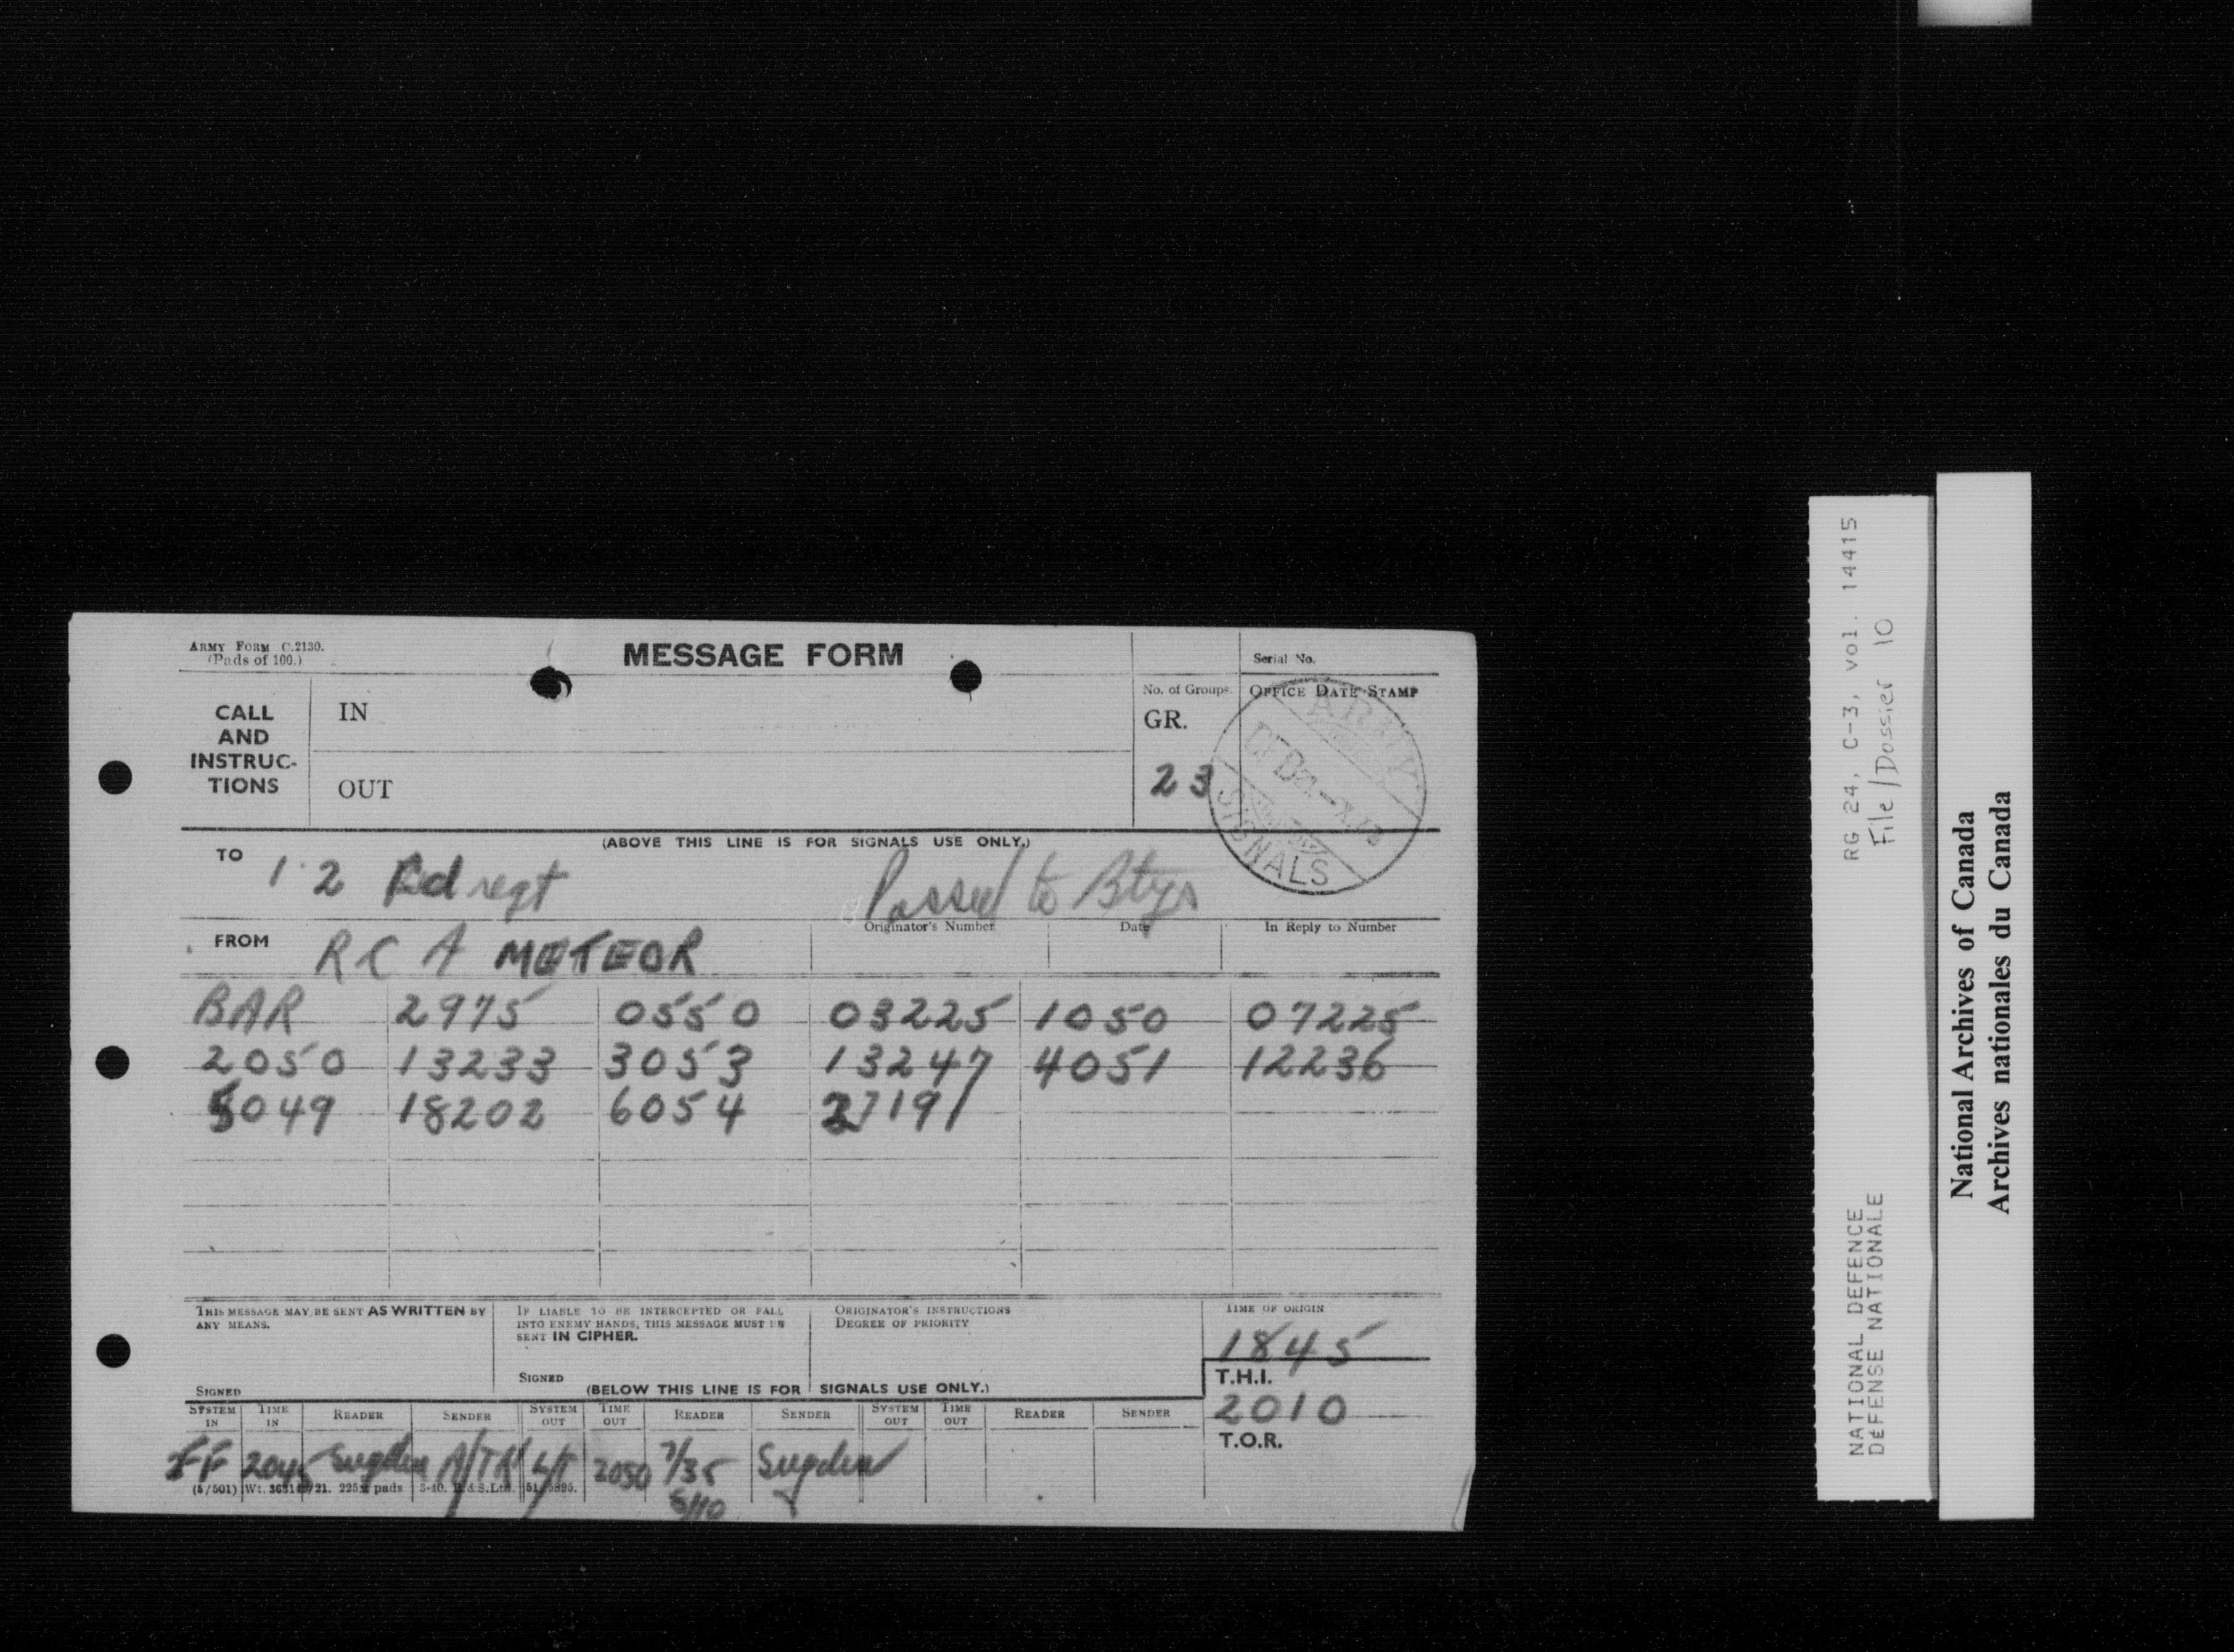 ARMY FORM C.2130.
(Pads of 100.)
MESSAGE FORM
Serial No.
CALL AND INSTRUC-TIONS
IN
OUT
No. of Groups.
GR.
23
OFFICE DATE STAMP
ARMY
SIGNALS
(ABOVE THIS LINE IS FOR SIGNALS USE ONLY.)
TO 1 2 Fd regt Passed to Btys
FROM R C A METEOR
Originator's Number Date In Reply to Number
BAR 2975 0550 03225 1050 07225
2050 13233 3053 13247 4051 12236
5049 18202 6054 27191
THIS MESSAGE MAY BE SENT AS WRITTEN BY ANY MEANS.
SIGNED
IF LIABLE TO BE INTERCEPTED OR FALL INTO ENEMY HANDS, THIS MESSAGE MUST BE SENT IN CIPHER.
SIGNED
ORIGINATOR'S INSTRUCTIONS
DEGREE OF PRIORITY
TIME OF ORIGIN
1845
T.H.I.
2010
T.O.R.
(BELOW THIS LINE IS FOR SIGNALS USE ONLY.)
SYSTEM IN TIME IN READER SENDER SYSTEM OUT TIME OUT READER SENDER SYSTEM OUT TIME OUT READER SENDER
FF 2045 Sugden A/TR L/T 2050 7/35 Sugden
(5/501) Wt. 225m pads 3-40. 51/5895.
RG 24, C-3, vol. 14415
File/Dossier 10
NATIONAL DEFENCE
DEFENSE NATIONALE
National Archives of Canada
Archives nationales du Canada